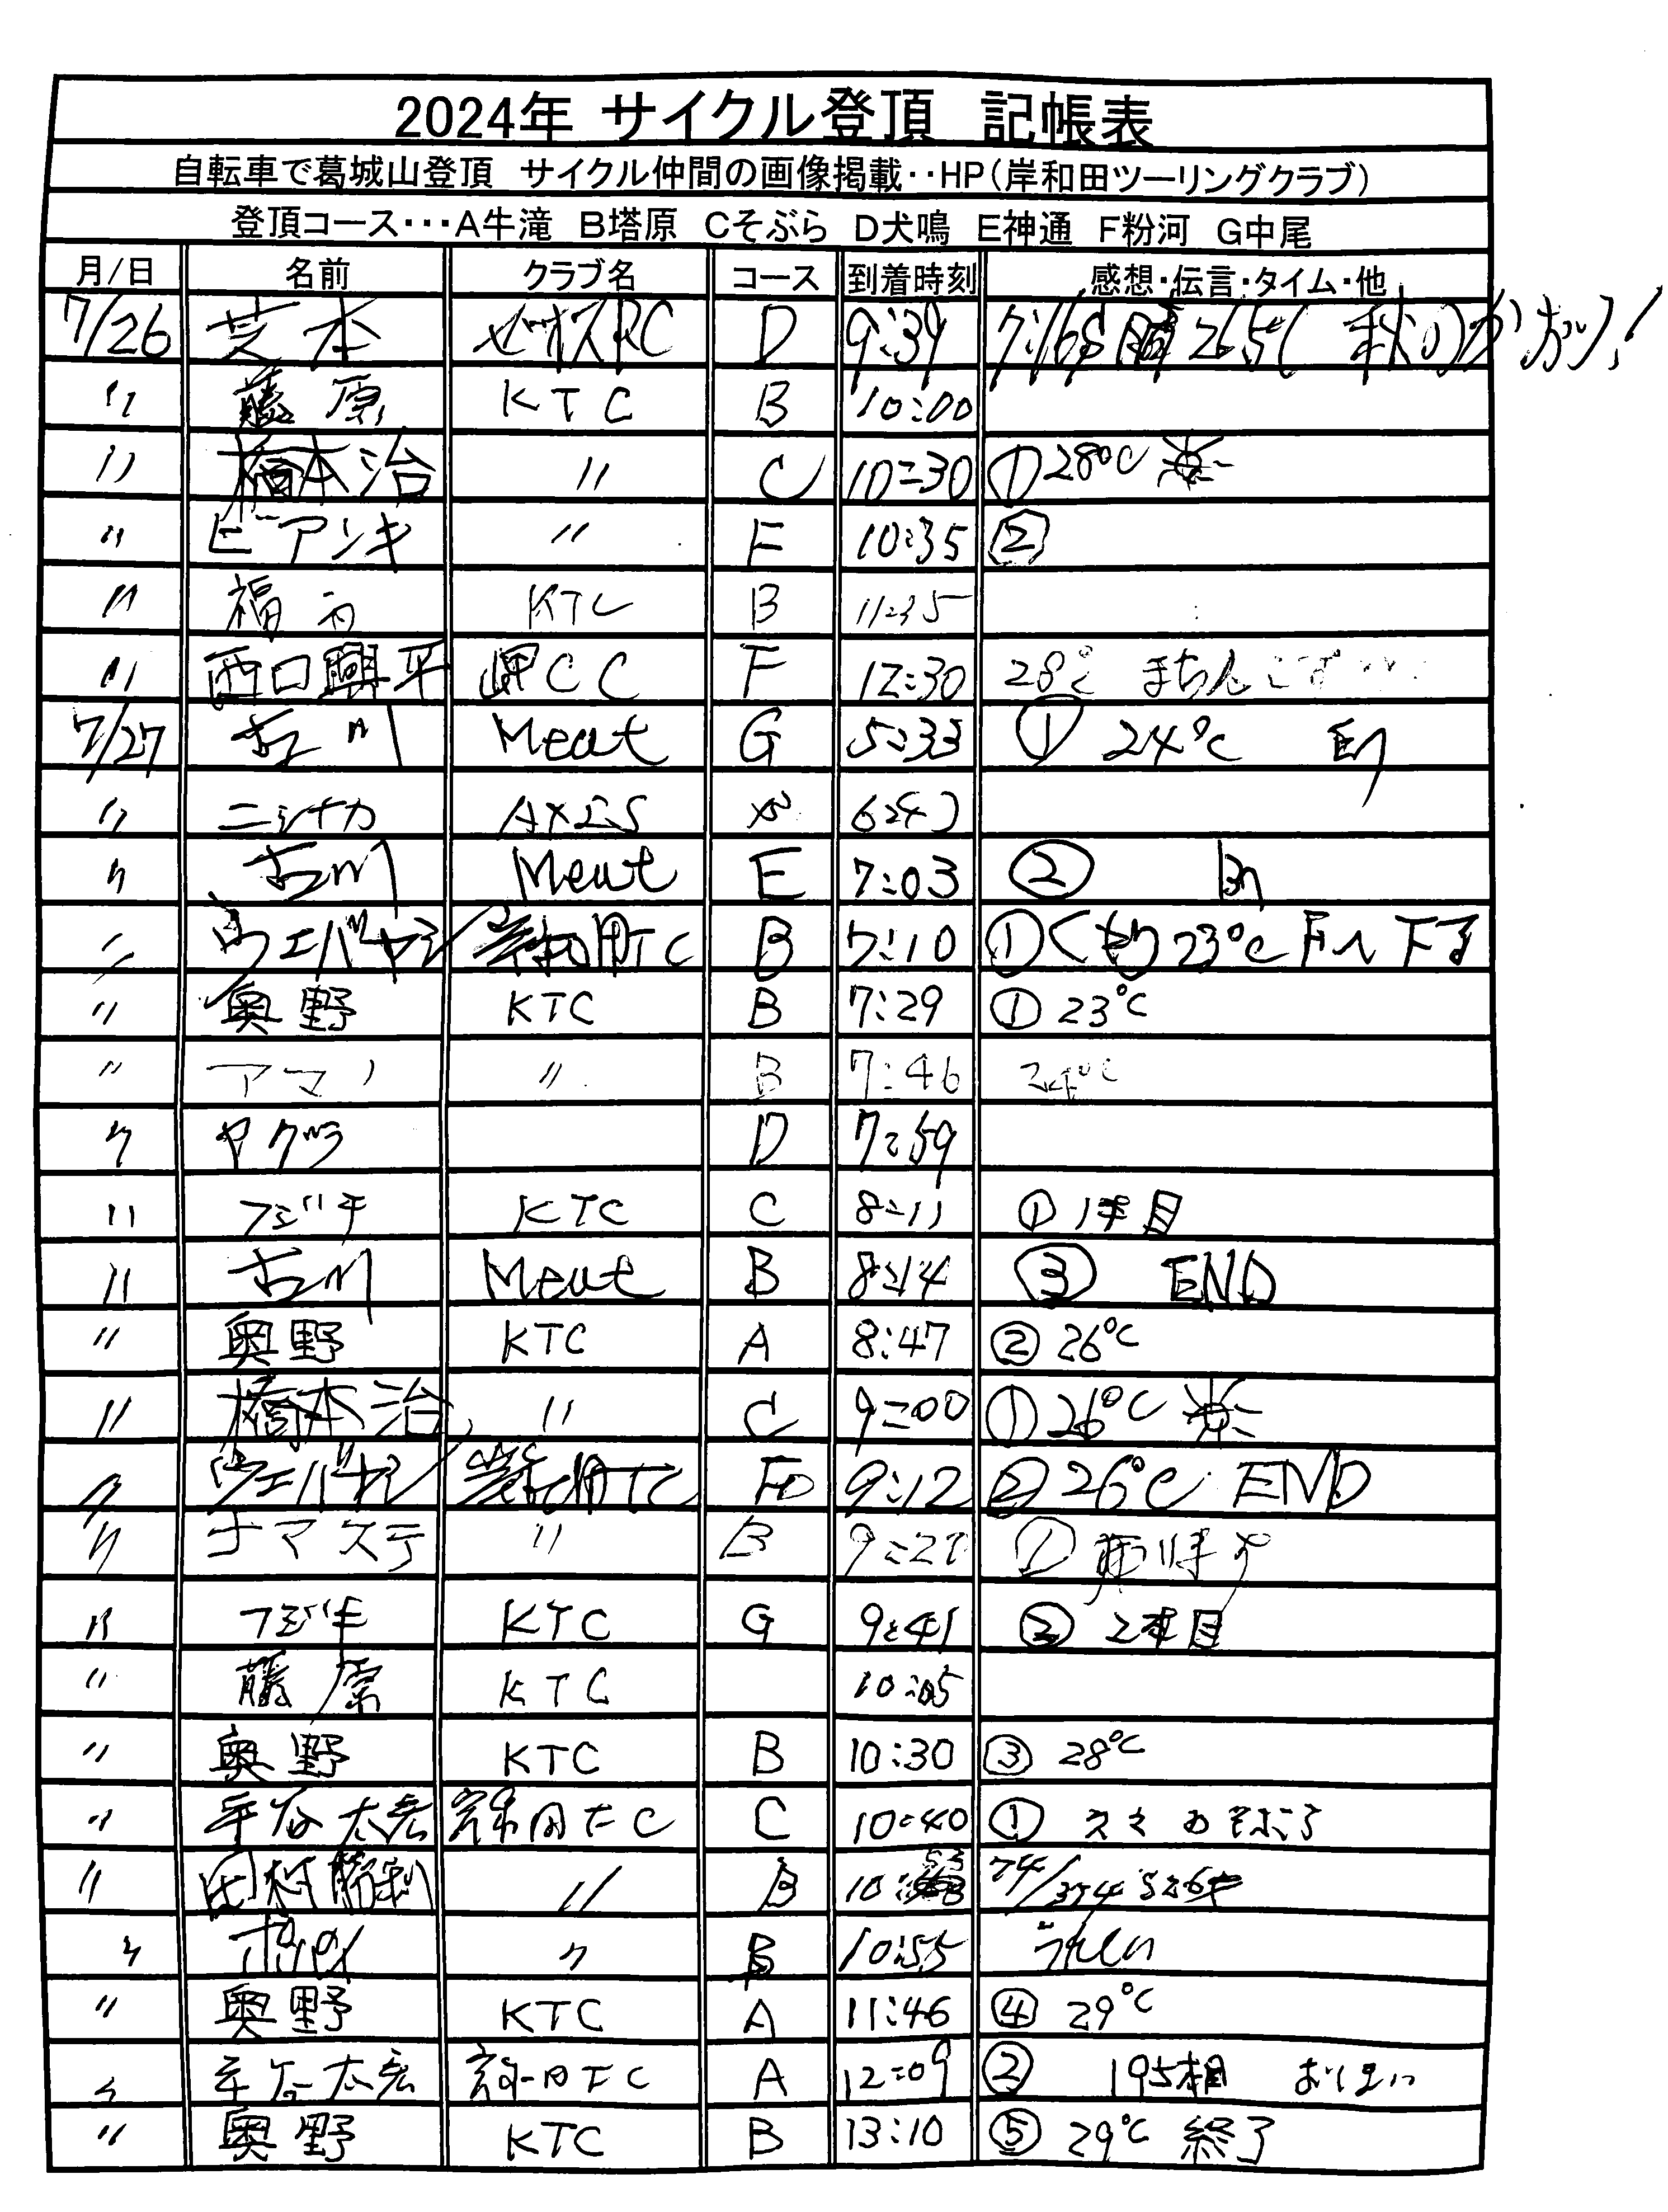 2024年 サイクル登頂 記帳表
自転車で葛城山登頂 サイクル仲間の画像掲載‥HP(岸和田ツーリングクラブ)
登頂コース･･･A牛滝 B塔原 Cそぶら D犬鳴 E神通 F粉河 G中尾
月/日 名前 クラブ名 コース 到着時刻 感想・伝言・タイム・他
7/26 芝本 ゼオスRC D 9:39 晴 26.5℃ 秋のかおり!
〃 藤原 KTC B 10:00
〃 橋本治 〃 C 10:30 ① 28℃
〃 ビアンキ 〃 F 10:35 ②
〃 福 KTC B 11:35
〃 西口興平 岬CC F 12:30 28℃
7/27 古川 Meut G 5:33 ① 24℃
〃 ニシナカ
〃 古川 Meut E 7:03 ②
〃 ウエバヤシ 岸和田TC B 7:10 ① くもり 23℃ 下る
〃 奥野 KTC B 7:29 ① 23℃
〃 アマノ 〃 B 7:46 24℃
〃 ヤクラ D 7:59
〃 フジキ KTC C 8:11 ① 1本目
〃 古川 Meut B 8:14 ③ END
〃 奥野 KTC A 8:47 ② 26℃
〃 橋本治 〃 C 9:00 ① 26℃
〃 ウエバヤシ 岸和田TC 9:12 ② 26℃ END
〃 ナマステ 〃 B ①
〃 フジキ KTC G 9:41 ② 2本目
〃 藤原 KTC 10:05
〃 奥野 KTC B 10:30 ③ 28℃
〃 平谷太宏 岸和田TC C 10:40 ①
〃 田村勝利 〃 B 10:53
〃 ポパイ 〃 B 10:55 うれしい
〃 奥野 KTC A 11:46 ④ 29℃
〃 平谷太宏 岸和田TC A 12:09 ② おしまい
〃 奥野 KTC B 13:10 ⑤ 29℃ 終了